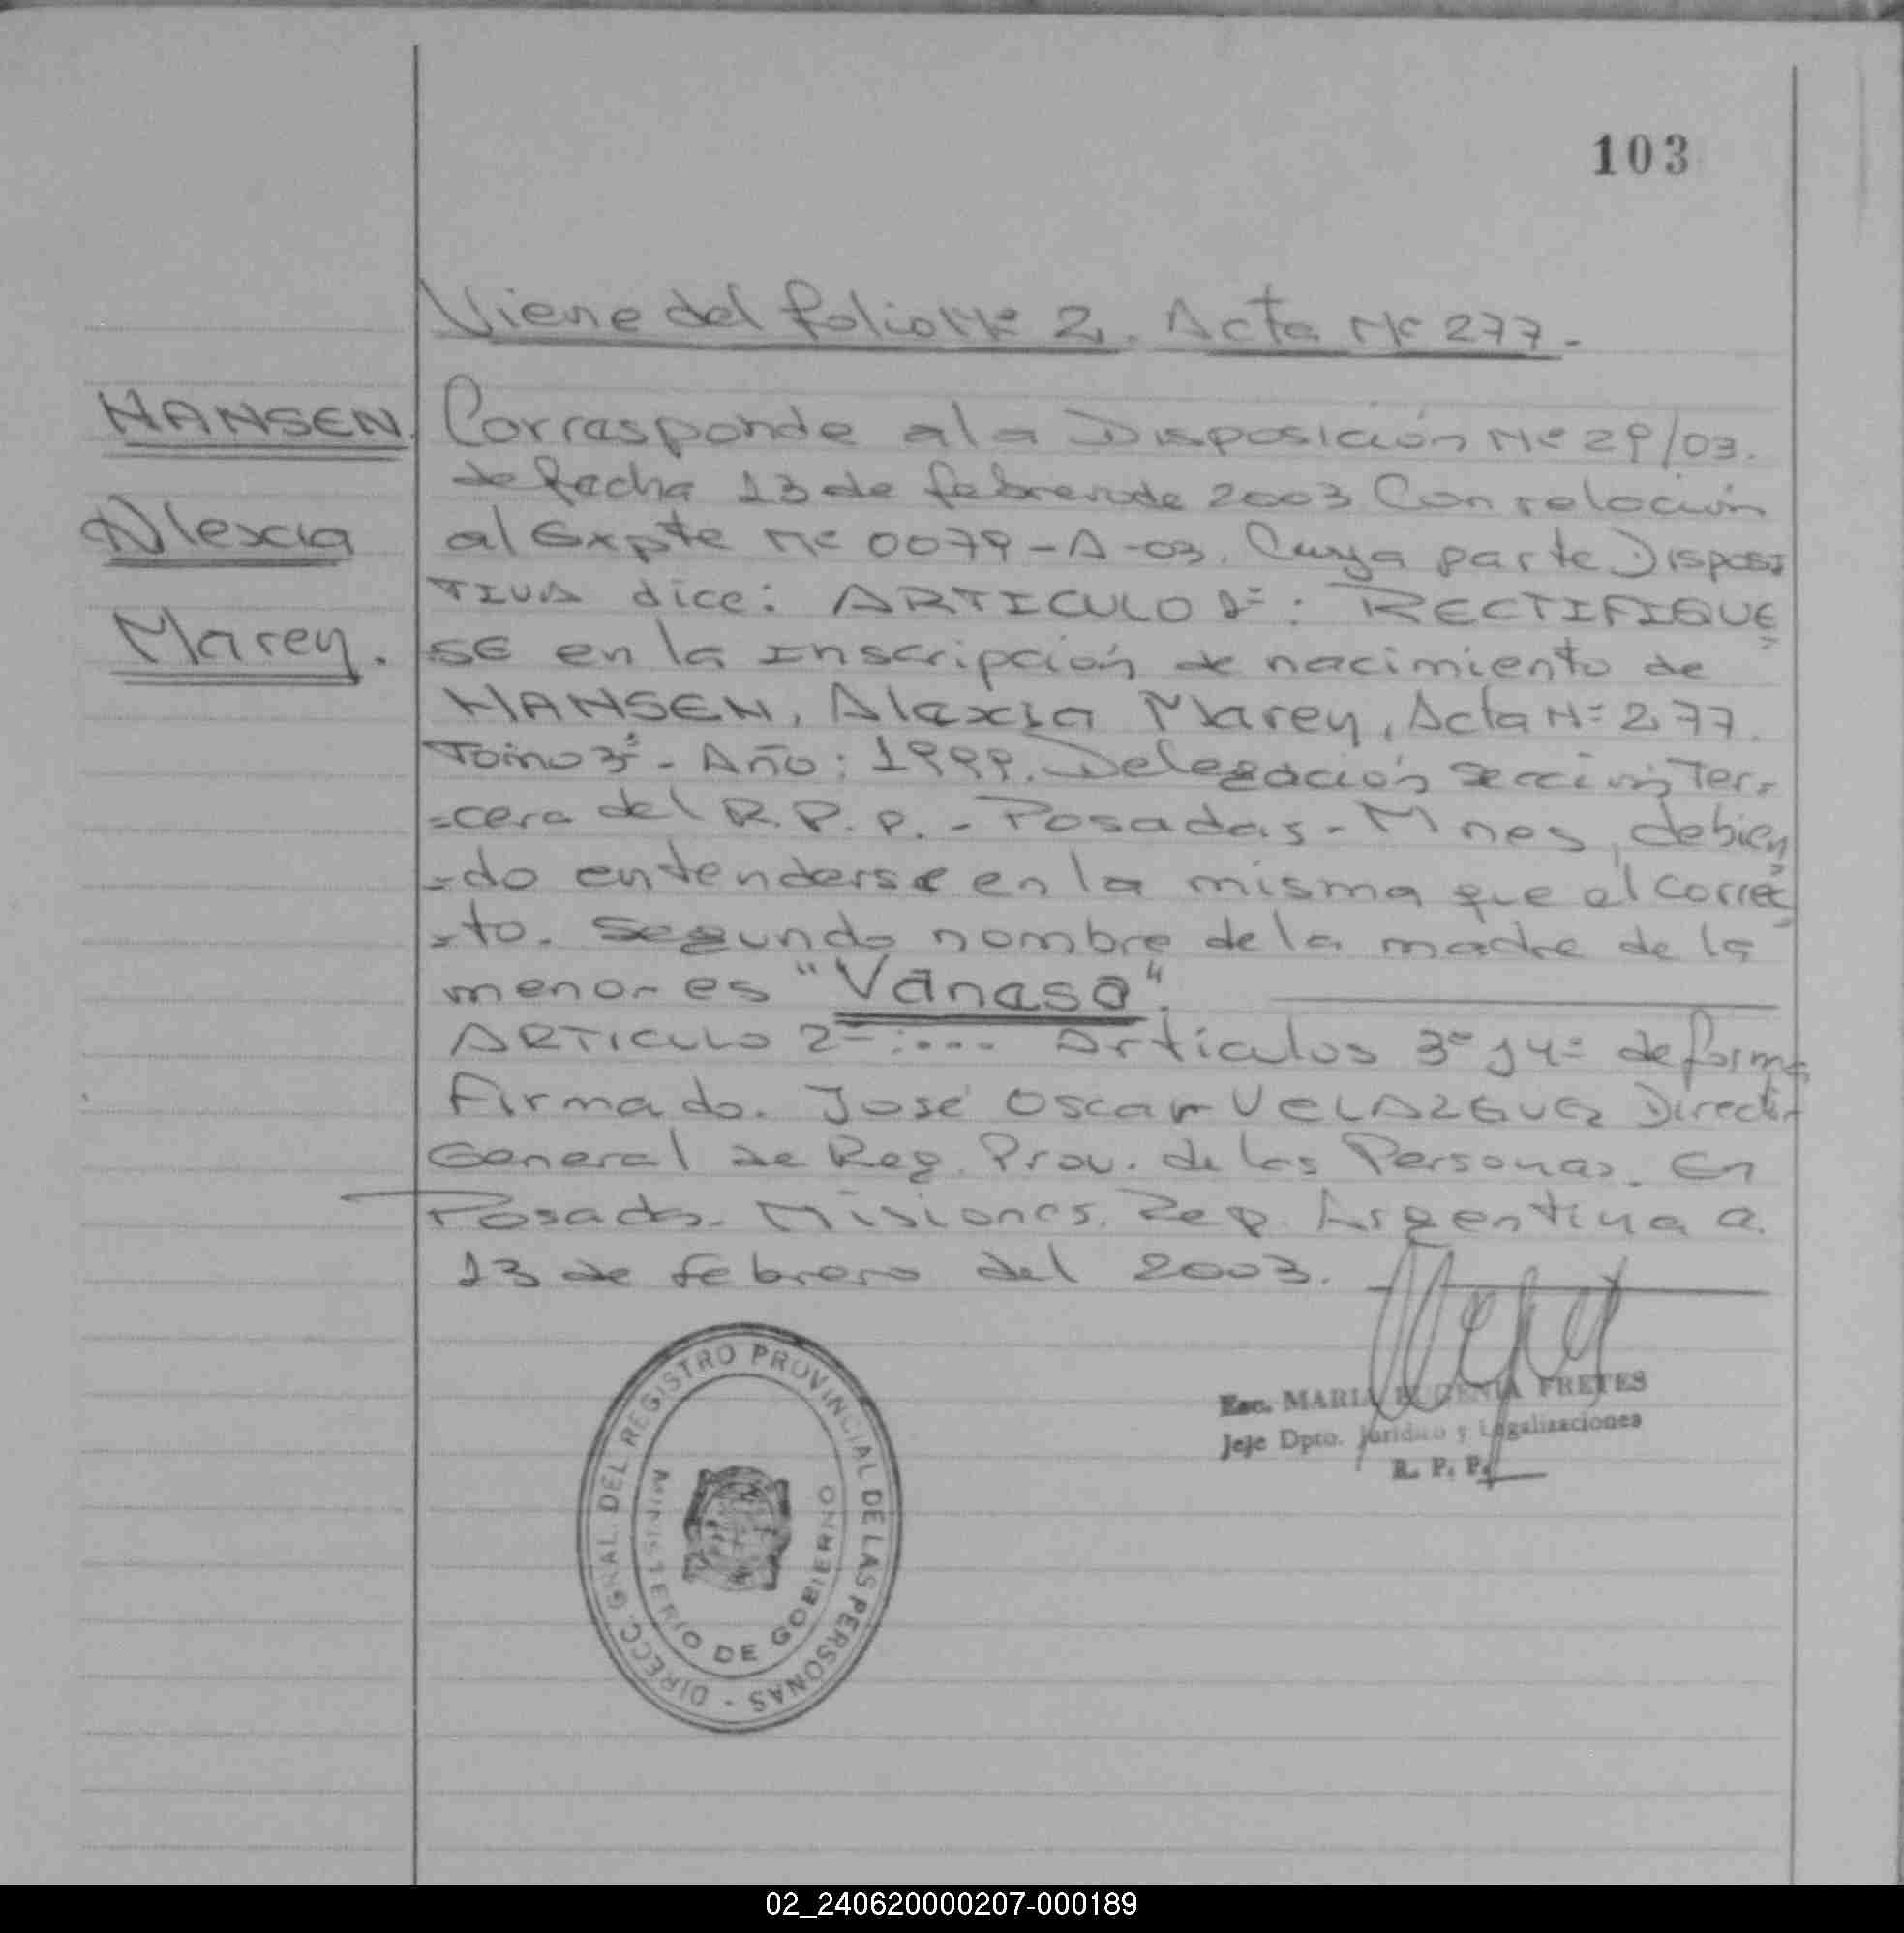 103
Viene del folio Nº 2. Acta Nº 277.-
HANSEN
Alexia
Marey.
Corresponde a la Disposición Nº 29/03.
de fecha 13 de febrero de 2003 Con relación
al Expte Nº 0079-A-03. Cuya parte Disposi
TIVA dice: ARTICULO 1º: RECTIFIQUE
SE en la Inscripción de nacimiento de
HANSEN, Alexia Marey, Acta Nº 277.
Tomo 3º - Año: 1999. Delegación Sección Ter-
=cera del R.P.P. - Posadas - Mnes, debien
=do entenderse en la misma que el correc
=to. Segundo nombre de la madre de la
menor es "Vanasa".
ARTICULO 2º:.... Articulos 3º y 4º de forma
Firmado. José Oscar VELAZQUEZ Director
General de Reg. Prov. de las Personas. En
Posadas - Misiones. Rep. Argentina a.
13 de febrero del 2003.
Esc. MARIA EUGENIA FRETES
Jefe Dpto. Jurídico y Legalizaciones
R. P. P.
DIRECC. GRAL. DEL REGISTRO PROVINCIAL DE LAS PERSONAS -
MINISTERIO DE GOBIERNO
02_240620000207-000189